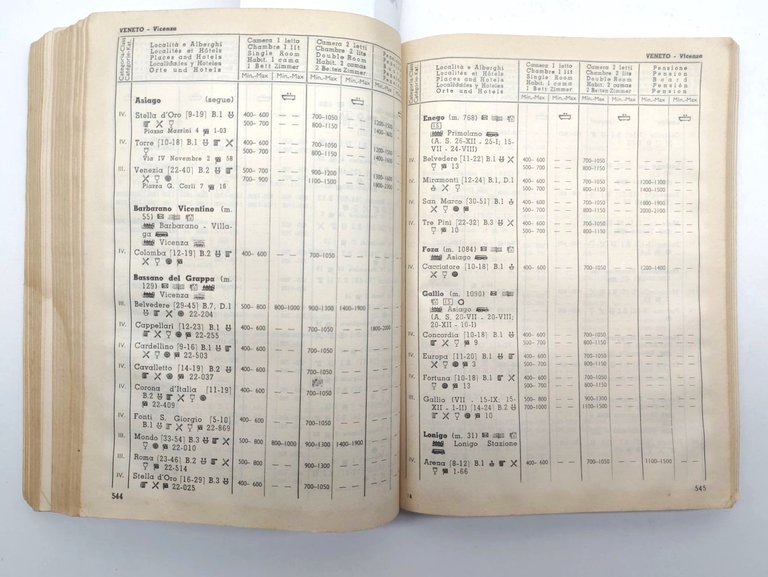 VENETO - Vicenza
Categoria-Class.
Catégorie-Kat.
Località e Alberghi
Localités et Hôtels
Places and Hotels
Localidades y Hoteles
Orte und Hotels
Camera 1 letto
Chambre 1 lit
Single Room
Habit. 1 cama
1 Bett Zimmer
Camera 2 letti
Chambre 2 lits
Double Room
Habit. 2 camas
2 Betten Zimmer
Min.-Max Min.-Max Min.-Max Min.-Max
Asiago (segue)
IV. Stella d'Oro [9-19] B.1 400- 600 — — 700-1050 — — 1200-1500
500- 700 — — 800-1150 — — 1400-1600
Piazza Mazzini 4 1-03
IV. Torre [10-18] B.1 400- 600 — — 700-1050 — —
500- 700 — — 800-1150 — —
Via IV Novembre 2 58
III. Venezia [22-40] B.2 500- 700 — — 900-1100 — —
700- 900 — — 1200-1500 — —
Piazza G. Carli 7 16
Barbarano Vicentino (m.
55)
Barbarano - Villa-
ga
Vicenza
IV. Colomba [12-19] B.2 400- 600 — — 700-1050 — —
Bassano del Grappa (m.
129)
Vicenza
III. Belvedere [29-45] B.7, D.1 500- 800 800-1000 900-1300 1400-1900
22-204
IV. Cappellari [12-23] B.1 400- 600 — — 700-1050 — — 1800-2000
22-255
IV. Cardellino [9-16] B.1 400- 600 — — 700-1050 — —
22-503
IV. Cavalletto [14-19] B.2 400- 600 — — 700-1050 — —
22-037
IV. Corona d'Italia [11-19] 400- 600 — — 700-1050 — —
B.2
22-409
IV. Fonti S. Giorgio [5-10] 400- 600 — — 700-1050 — —
B.1 22-869
III. Mondo [33-54] B.3 500- 800 800-1000 900-1300 1400-1900
22-010
III. Roma [23-46] B.2 500- 800 — — 900-1300 — —
22-514
IV. Stella d'Oro [16-29] B.3 400- 600 — — 700-1050 — —
22-025
544
VENETO - Vicenza
Categoria-Class.
Catégorie-Kat.
Località e Alberghi
Localités et Hôtels
Places and Hotels
Localidades y Hoteles
Orte und Hotels
Camera 1 letto
Chambre 1 lit
Single Room
Habit. 1 cama
1 Bett Zimmer
Camera 2 letti
Chambre 2 lits
Double Room
Habit. 2 camas
2 Betten Zimmer
Pensione
Pension
Board
Pensión
Pension
Min.-Max Min.-Max Min.-Max Min.-Max Min.-Max Min.-Max
Enego (m. 768)
15
Primolano
(A. S. 26-XII - 25-I; 15-
VII - 24-VIII)
IV. Belvedere [11-22] B.1 400- 600 — — 700-1050 — — — — — —
13 500- 700 — — 800-1150 — — — — — —
IV. Miramonti [12-24] B.1, D.1 400- 600 — — 700-1050 — — 1200-1300 — —
500- 700 — — 800-1150 — — 1400-1500 — —
IV. San Marco [30-51] B.1 400- 600 — — 700-1050 — — 1800-1900 — —
500- 700 — — 800-1150 — — 2000-2100 — —
IV. Tre Pini [22-32] B.3 400- 600 — — 700-1050 — — — — — —
10 500- 700 — — 800-1150 — — — — — —
Foza (m. 1084)
Asiago
IV. Cacciatore [10-18] B.1 400- 600 — — 700-1050 — — 1200-1400 — —
Gallio (m. 1090)
15
Asiago
(A. S. 20-VII - 20-VIII;
20-XII - 10-I)
IV. Concordia [10-18] B.1 400- 600 — — 700-1050 — — — — — —
9 500- 700 — — 800-1150 — — — — — —
IV. Europa [11-20] B.1 400- 600 — — 700-1050 — — — — — —
3 500- 700 — — 800-1150 — — — — — —
IV. Fortuna [10-18] B.1 400- 600 — — 700-1050 — — — — — —
13 500- 700 — — 800-1150 — — — — — —
III. Gallio (VII - 15-IX; 15- 500- 800 — — 900-1300 — — — — — —
XII - 1-II) [14-24] B.2 700-1000 — — 1100-1500 — — — — — —
10
Lonigo (m. 31)
Lonigo Stazione
IV. Arena [8-12] B.1 400- 600 — — 700-1050 — — 1100-1500 — —
1-66
545